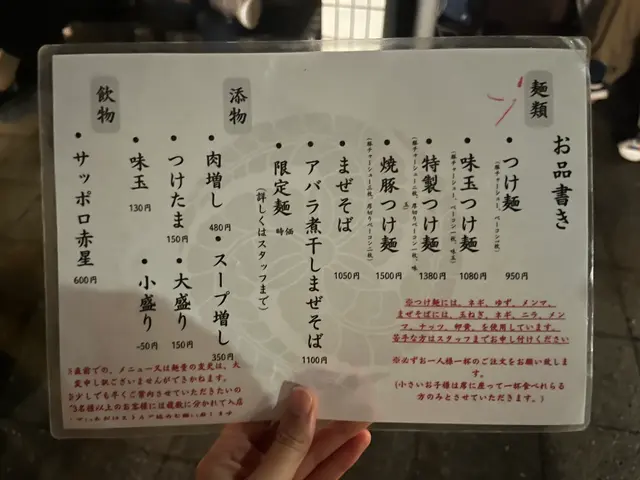 お品書き
麺類
・つけ麺 950円
(豚チャーシュー、ベーコン一枚)
・味玉つけ麺 1080円
(豚チャーシュー、ベーコン一枚、味玉)
・特製つけ麺 1380円
(豚チャーシュー二枚、厚切りベーコン一枚、味玉)
・焼豚つけ麺 1500円
(豚チャーシュー三枚、厚切りベーコン二枚)
・まぜそば 1050円
・アバラ煮干しまぜそば 1100円
・限定麺 時価
(詳しくはスタッフまで)
添物
・肉増し 480円
・スープ増し 350円
・つけたま 150円
・大盛り 150円
・味玉 130円
・小盛り -50円
飲物
・サッポロ赤星 600円
※つけ麺には、ネギ、ゆず、メンマ、
まぜそばには、玉ねぎ、ネギ、ニラ、メン
マ、ナッツ、卵黄、を使用しています。
苦手な方はスタッフまでお申し付けください
※必ずお一人様一杯のご注文をお願い致しま
す。
(小さいお子様は席に座って一杯食べれらる
方のみとさせていただきます。)
直前での、メニュー又は麺量の変更は、大
変申し訳ございませんができかねます。
少しでも早くご案内させていただきたいの
3名様以上のお客様には複数に分かれて入店